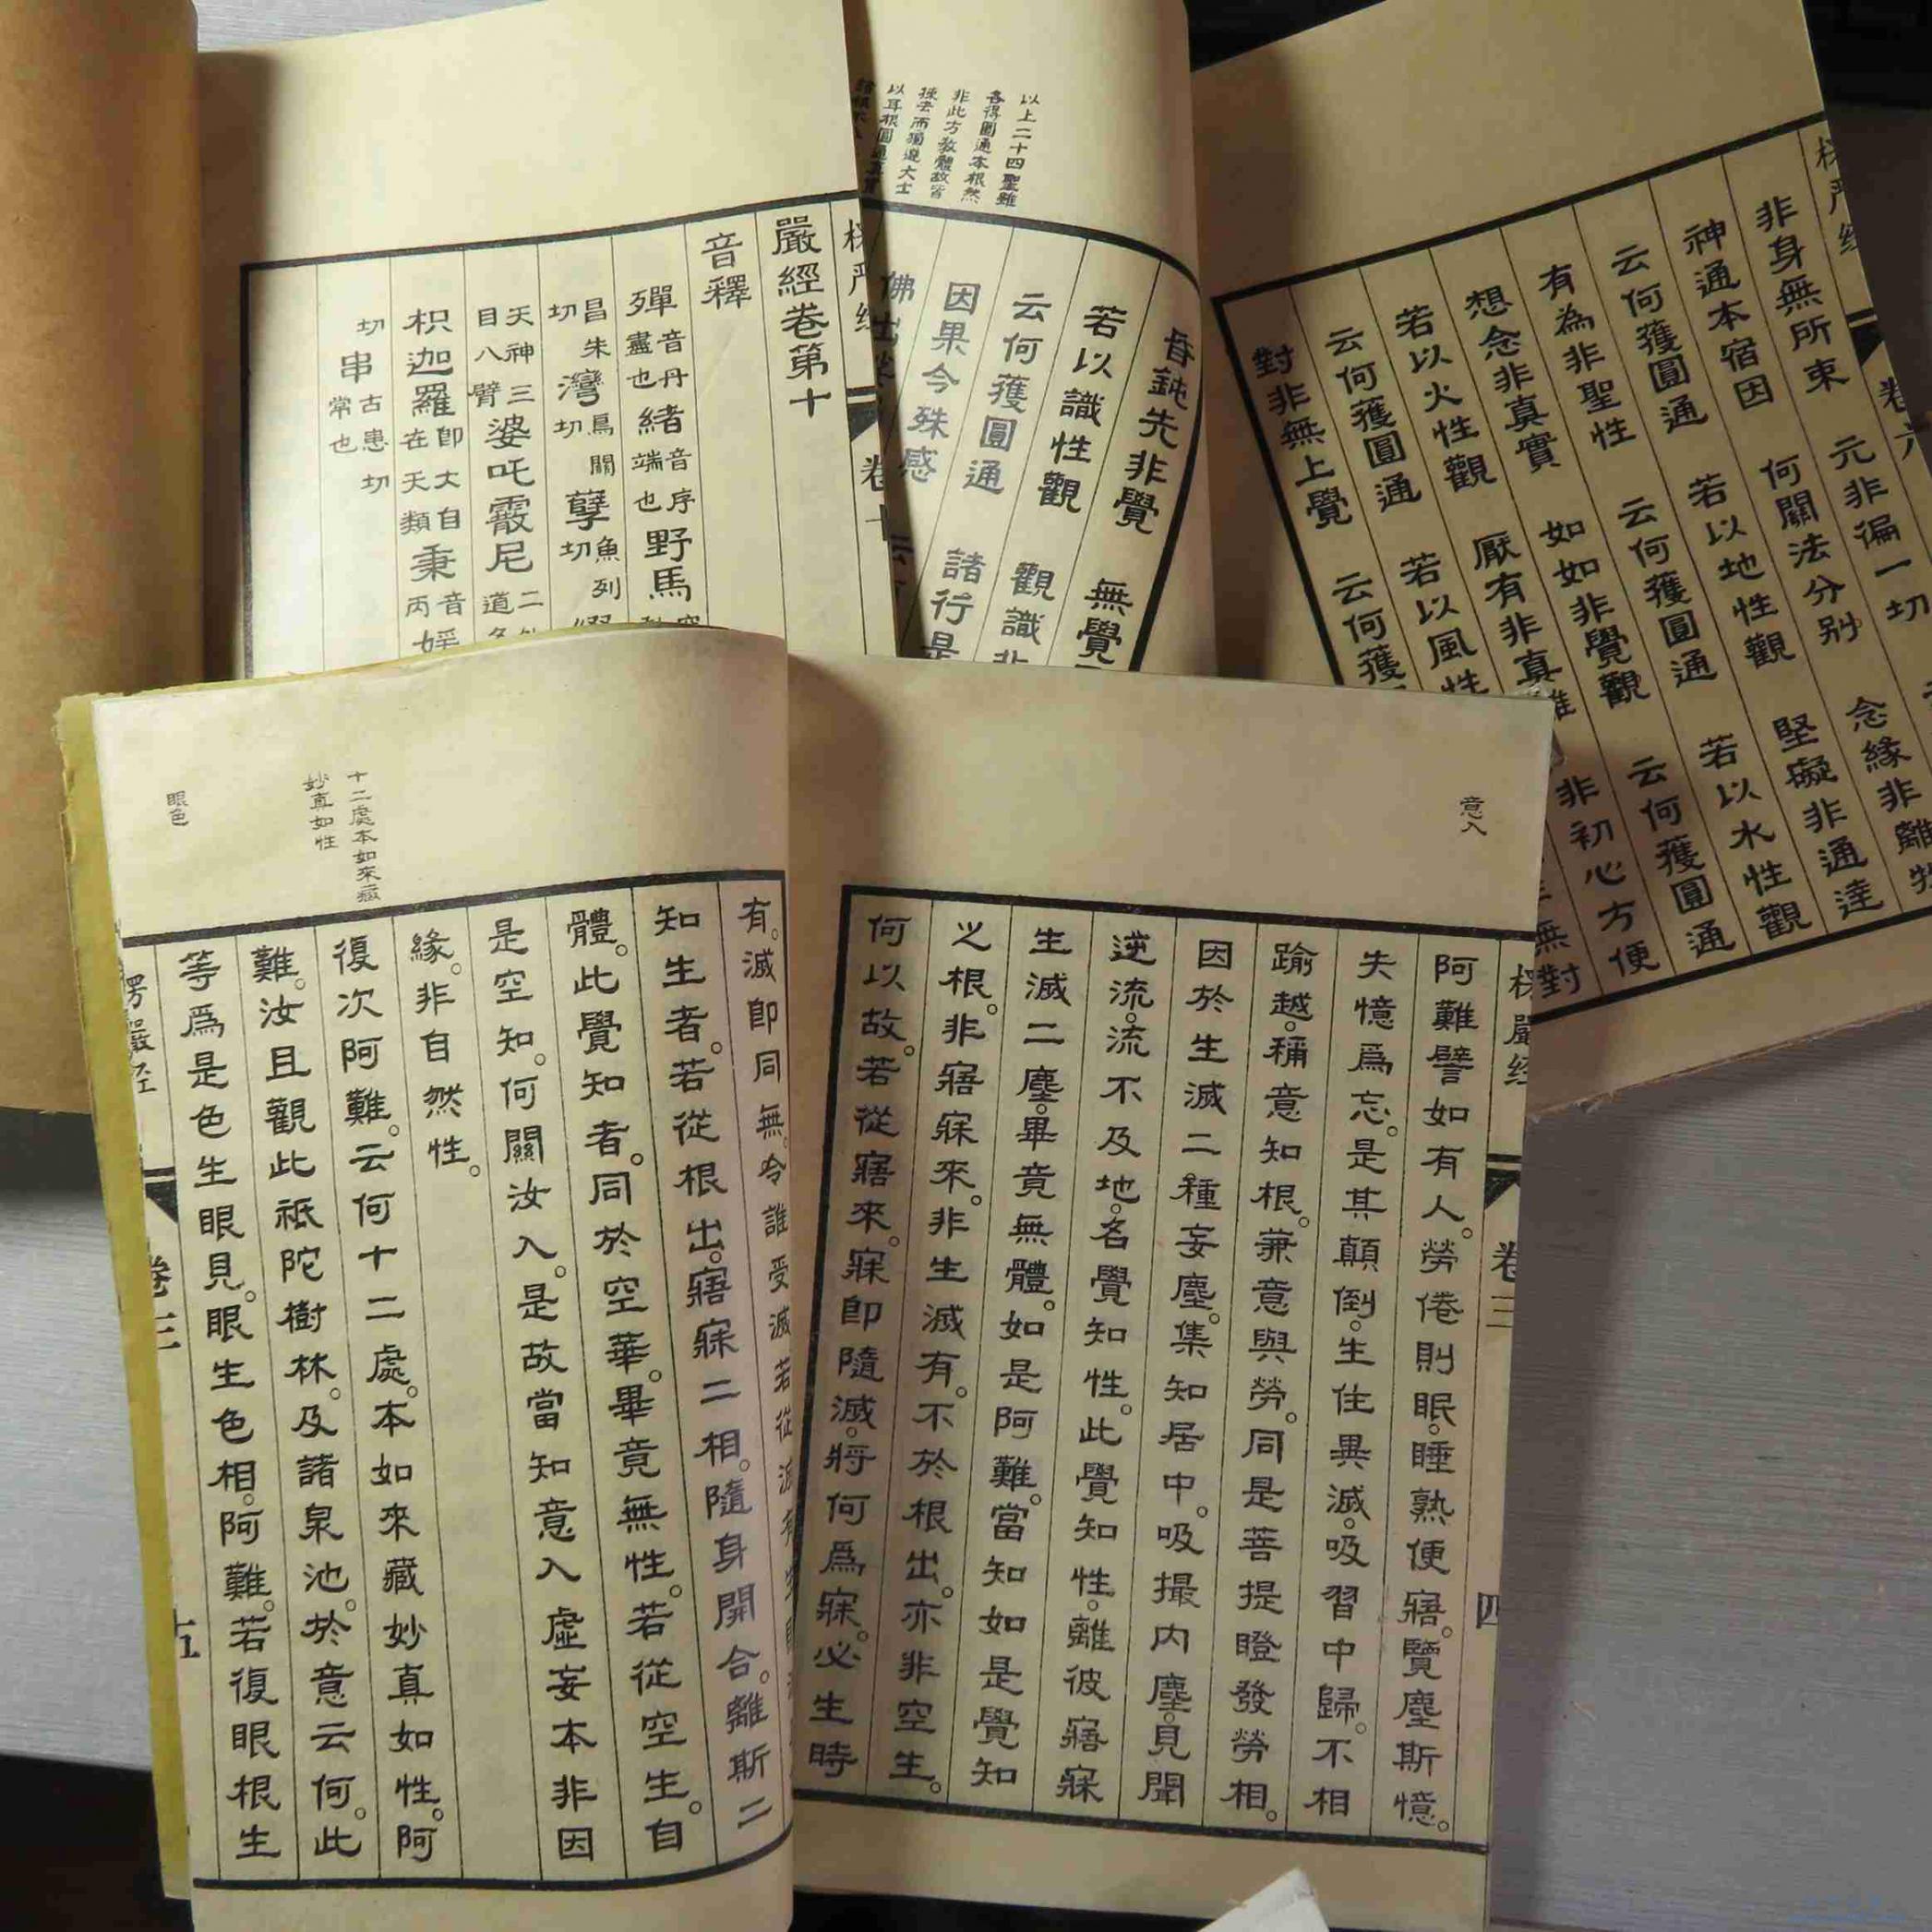 嚴經卷第十
音釋
殫音丹盡也緒音序端也野馬
昌朱切灣烏關切孽魚列切
天神三目八臂婆吒霰尼二
枳迦羅即大自在天類秉音丙
切串古患切常也
卷十
以上二十四聖雖
各得圓通本根然
非此方教體故皆
揀去而獨選大士
以耳根圓通真實
昏鈍先非覺 無覺
若以識性觀 觀識非
云何獲圓通 諸行是
因果今殊感
佛出
楞严经 卷六
非身無所束 元非徧一切
神通本宿因 何關法分別 念緣非離物
云何獲圓通 若以地性觀 堅礙非通達
有為非聖性 云何獲圓通 若以水性觀
想念非真實 如如非覺觀 云何獲圓通
若以火性觀 厭有非真離 非初心方便
云何獲圓通 若以風性 無對
對非無上覺 云何獲
意入
楞嚴经 卷三 四
阿難譬如有人。勞倦則眠。睡熟便寤。覽塵斯憶。
失憶爲忘。是其顛倒。生住異滅。吸習中歸。不相
踰越。稱意知根。兼意與勞。同是菩提瞪發勞相。
因於生滅二種妄塵。集知居中。吸撮內塵。見聞
逆流。流不及地。名覺知性。此覺知性。離彼寤寐
生滅二塵。畢竟無體。如是阿難。當知如是覺知
之根。非寤寐來。非生滅有。不於根出。亦非空生。
何以故。若從寤來。寐即隨滅。將何爲寐。必生時
十二處本如來藏
妙真如性
眼色
有。滅即同無。令誰受滅若從滅有
知生者。若從根出。寤寐二相。隨身開合。離斯二
體。此覺知者。同於空華。畢竟無性。若從空生。自
是空知。何關汝入。是故當知意入虛妄本非因
緣。非自然性。
復次阿難。云何十二處。本如來藏妙真如性。阿
難。汝且觀此祇陀樹林。及諸泉池。於意云何。此
等爲是色生眼見。眼生色相。阿難。若復眼根生
楞嚴经 卷三 五